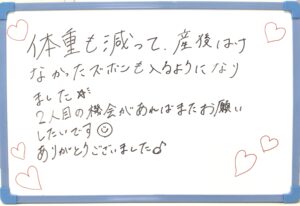 体重も減って、産後はけ
なかったズボンも入るようになり
ました☆
2人目の機会があればまたお願い
したいです☺
ありがとうございました♂